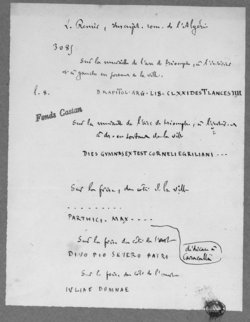 L. Renier, Inscript. rom. de l'Algérie
3085
Sur la muraille de l'arc de triomphe, à l'intérieur
à gauche en faveur de la ville.
l. 8.
D RAPITOL·ARG·LIB·CLXXIDEST LANCES IIII
Fonds Costan
Sur la muraille de l'arc de triomphe, à l'
à dr. en sortant de la ville
DIES GYMNAS EX TEST CORNELI EGRILIANI ...
Sur la frise, du côté de la ville
PARTHICI. MAX. ...
Sur la frise du côté de l'ouest
DIVO PIO SEVERO PATRI
à Caracalla
Sur la frise, du côté de l'ouest
IVLIAE DOMNAE